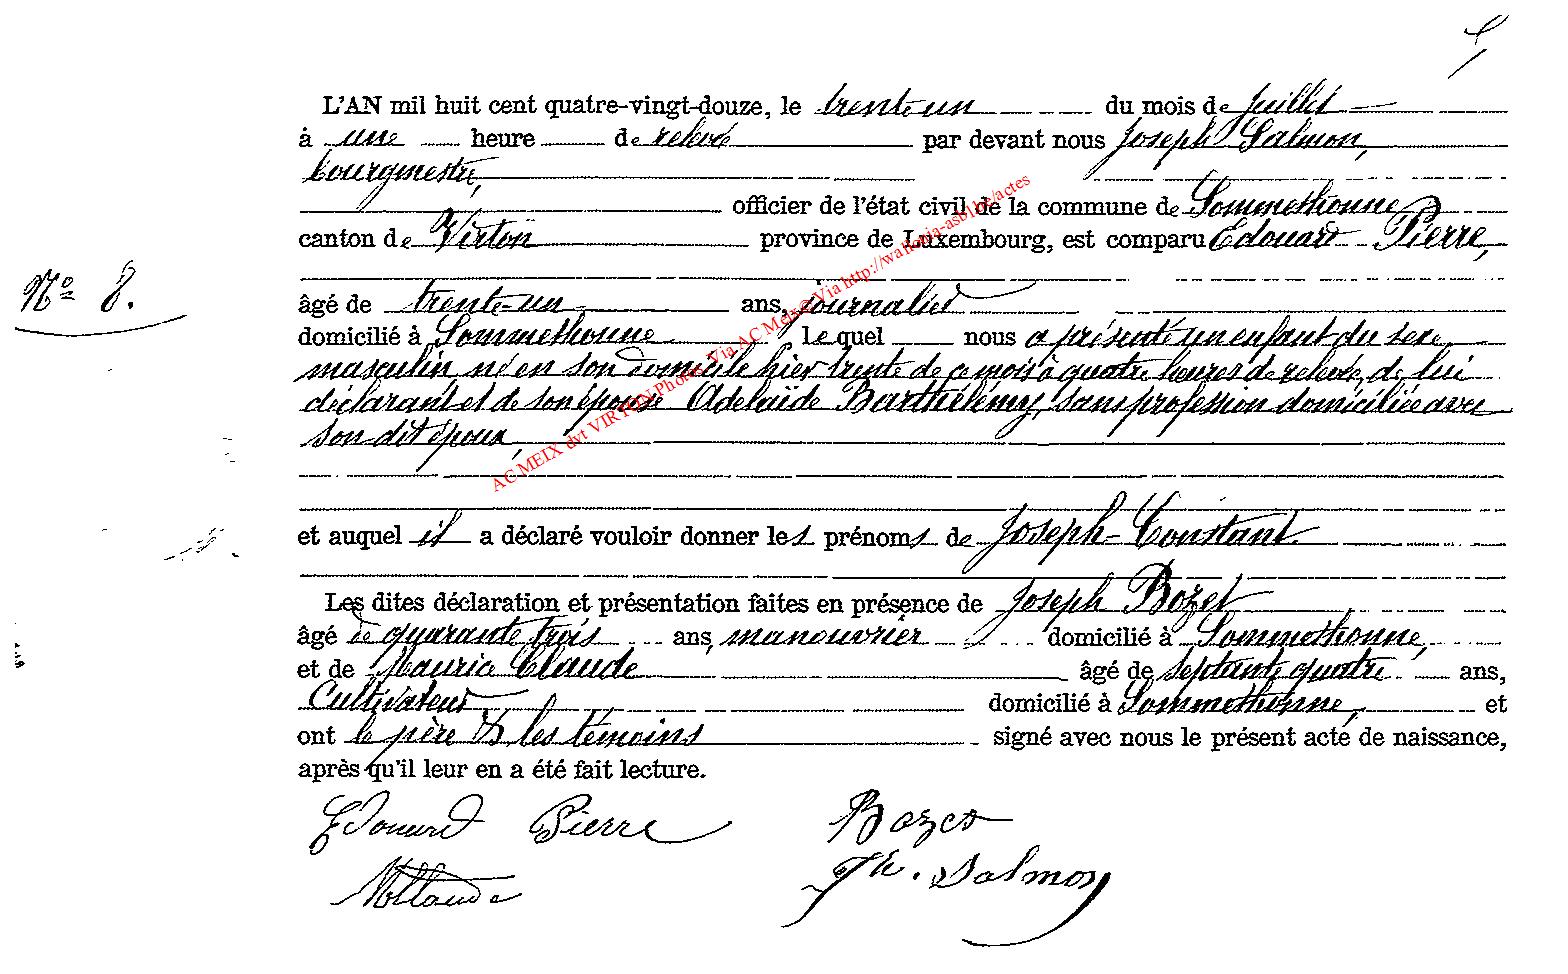 L'AN mil huit cent quatre-vingt-douze, le trente un du mois de Juillet
à une heure de relevée par devant nous Joseph Salmon,
bourgmestre,
officier de l'état civil de la commune de Sommethonne
canton de Virton province de Luxembourg, est comparu Edouard Pierre,
N° 8.
âgé de trente-un ans, journalier
domicilié à Sommethonne lequel nous a présenté un enfant du sexe
masculin né en son domicile hier trente de ce mois à quatre heures de relevée, de lui
déclarant et de son épouse Adelaïde Barthélémy, sans profession domiciliée avec
son dit époux,
et auquel il a déclaré vouloir donner les prénoms de Joseph-Constant
Les dites déclaration et présentation faites en présence de Joseph Bozet
âgé de quarante trois ans, manouvrier domicilié à Sommethonne,
et de Maurice Claude âgé de septante quatre ans,
Cultivateur domicilié à Sommethonne, et
ont le père & les témoins signé avec nous le présent acte de naissance,
après qu'il leur en a été fait lecture.
Edouard Pierre Bozet
MClaude Jh. Salmon
AC MEIX dvt VIRTON Photos Via AC Meix@ Via http://wallonia-asbl.be/actes